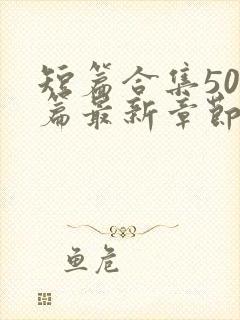 短篇合集50
篇最新章节
鱼危